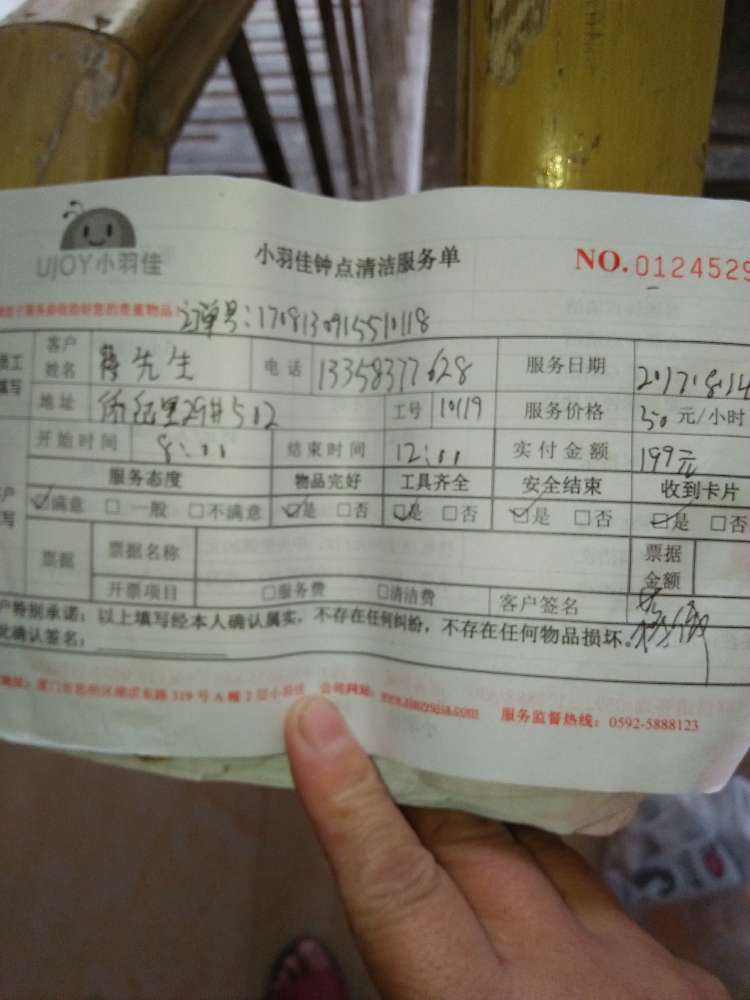 UJOY小羽佳
小羽佳钟点清洁服务单
NO.0124529
订单号:1708130915510118
客户姓名 先生 电话 13358377628 服务日期 2017.8.14
地址 侨 里29# 502 工号 10119 服务价格 50元/小时
开始时间 8:00 结束时间 12:00 实付金额 199元
服务态度 物品完好 工具齐全 安全结束 收到卡片
满意 一般 不满意 是 否 是 否 是 否 是 否
票据 票据名称 票据金额
开票项目 服务费 清洁费 客户签名
户特别承诺:以上填写经本人确认属实,不存在任何纠纷,不存在任何物品损坏。
此确认签名:
地址:厦门市思明区湖滨东路319号A幢2层小羽佳 公司网址: 服务监督热线:0592-5888123